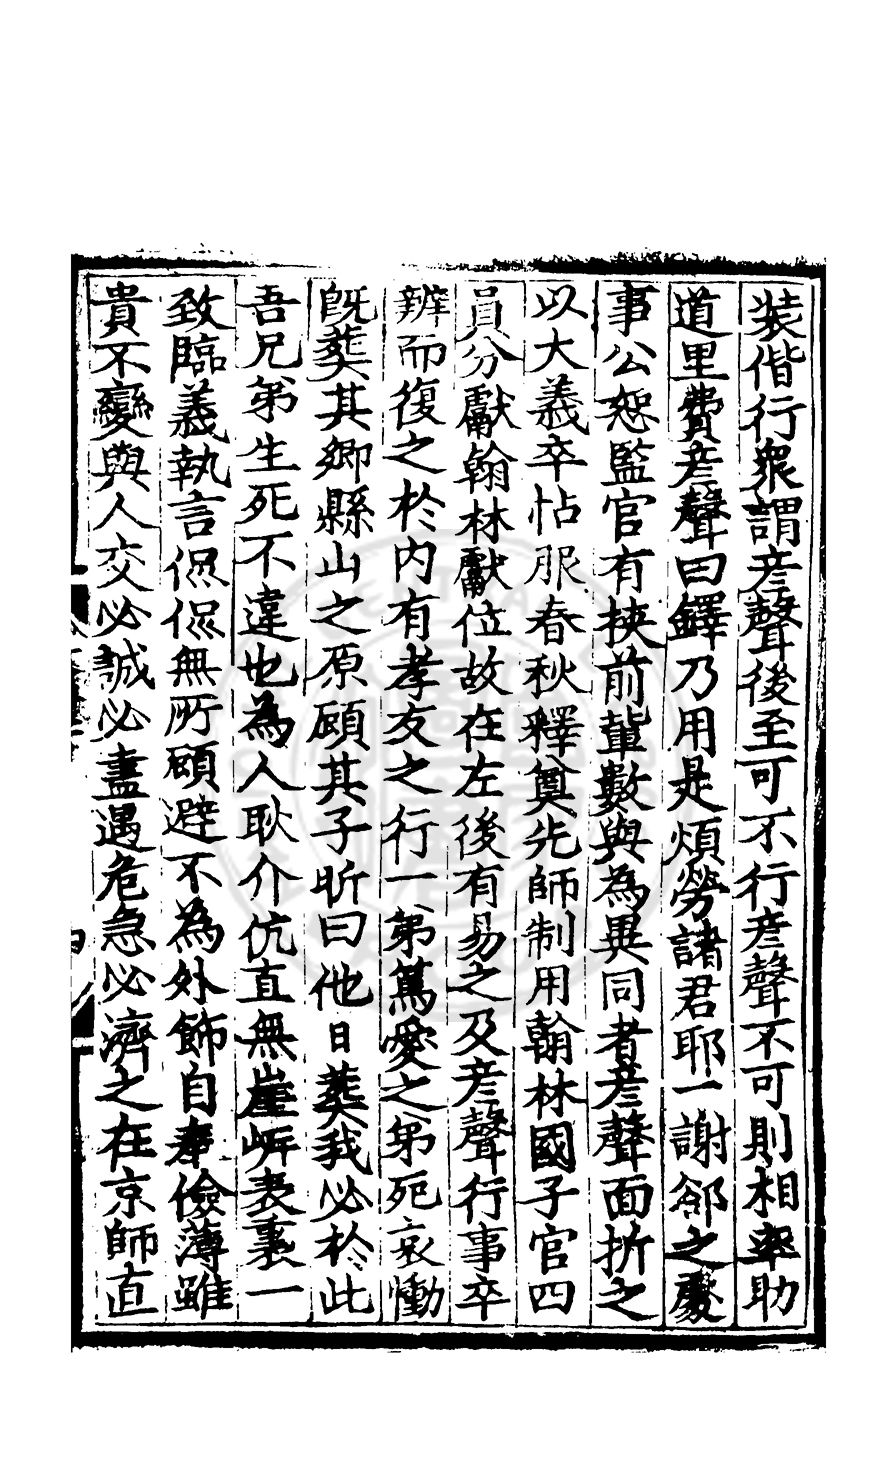 装偕行衆謂彦聲後至可不行彦聲不可則相率助
道里費彦聲曰鐸乃用是煩勞諸君耶一謝郤之處
事公恕監官有挾前輩數與為異同者彦聲面折之
以大義卒帖服春秋釋奠先師制用翰林國子官四
員分獻翰林獻位故在左後有易之及彦聲行事卒
辨而復之於内有孝友之行一弟篤愛之弟死哀慟
旣葬其鄉縣山之原顧其子昕曰他日葬我必於此
吾兄弟生死不違也為人耿介伉直無崖㟁表裏一
致臨義執言侃侃無所顧避不為外飾自奉儉薄雖
貴不變與人交必誠必盡遇危急必濟之在京師直